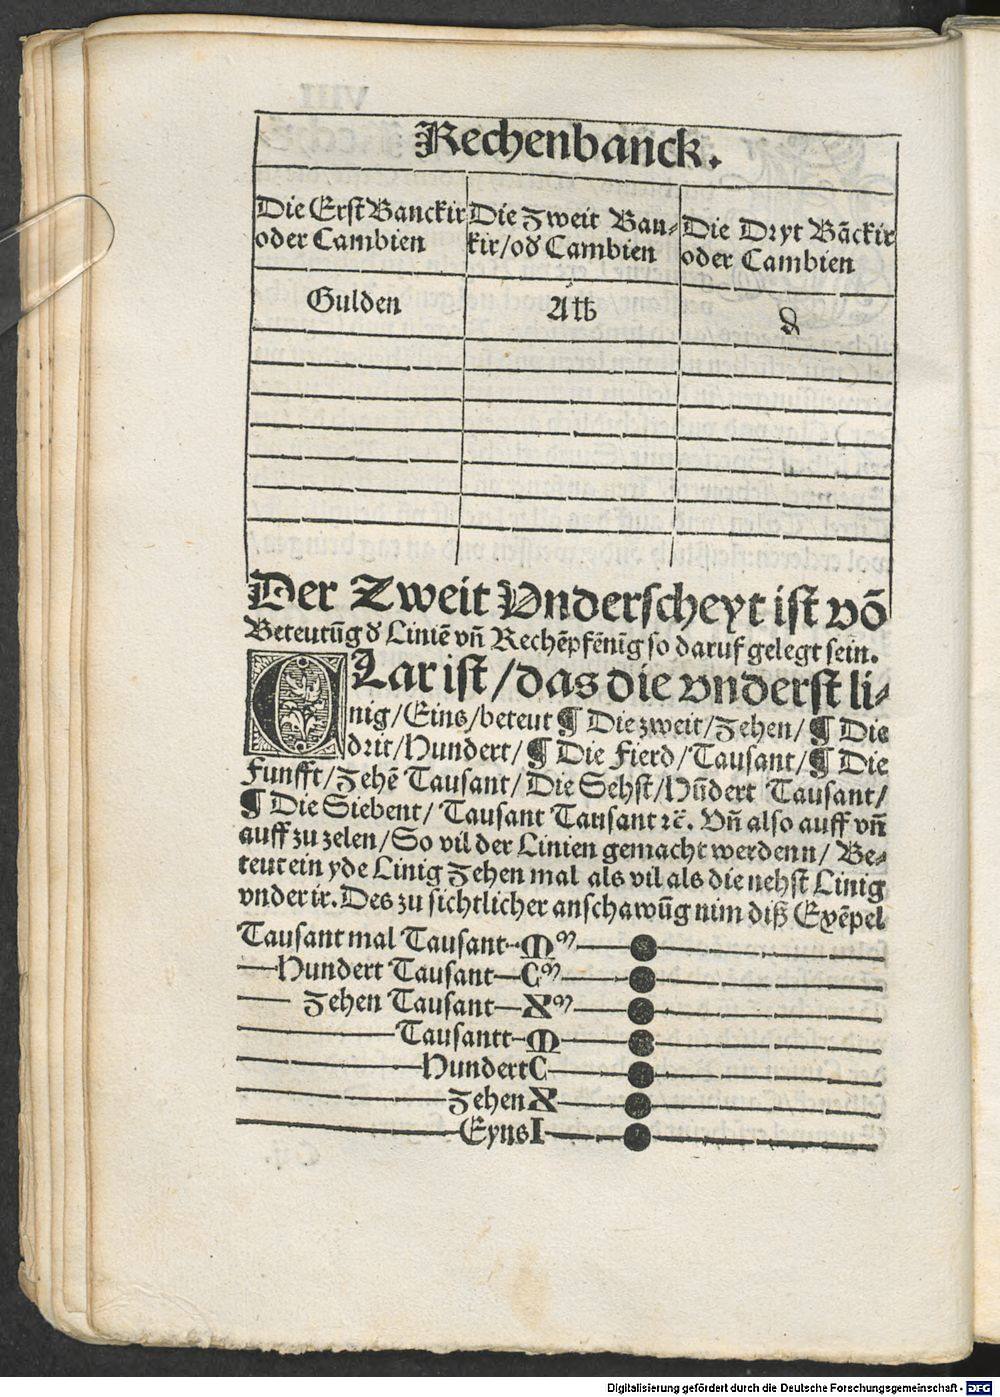 Rechenbanck.
Die Erst Banckir
oder Cambien
Die Zweit Ban-
kir/od Cambien
Die Dryt Bāckir
oder Cambien
Gulden
Alb
₰
Der Zweit Vnderscheyt ist vō
Beteutūg d Liniē vn̄ Rechēpfēnīg so daruf gelegt sein.
CLar ist/das die vnderst li-
nig/Eins/beteut ¶ Die zweit/Zehen/¶ Die
drit/Hundert/¶ Die Fierd/Tausant/¶ Die
Funfft/Zehē Tausant/Die Sehst/Hūdert Tausant/
¶ Die Siebent/Tausant Tausant ⁊c̄. Vn̄ also auff vn̄
auff zu zelen/So vil der Linien gemacht werdenn/Be-
teut ein yde Linig Zehen mal als vil als die nehst Linig
vnder ir. Des zu sichtlicher anschawūg nim diß Exēpel
Tausant mal Tausant M^m
Hundert Tausant C^m
Zehen Tausant X^m
Tausantt M
Hundert C
Zehen X
Eyns I
Digitalisierung gefördert durch die Deutsche Forschungsgemeinschaft - DFG